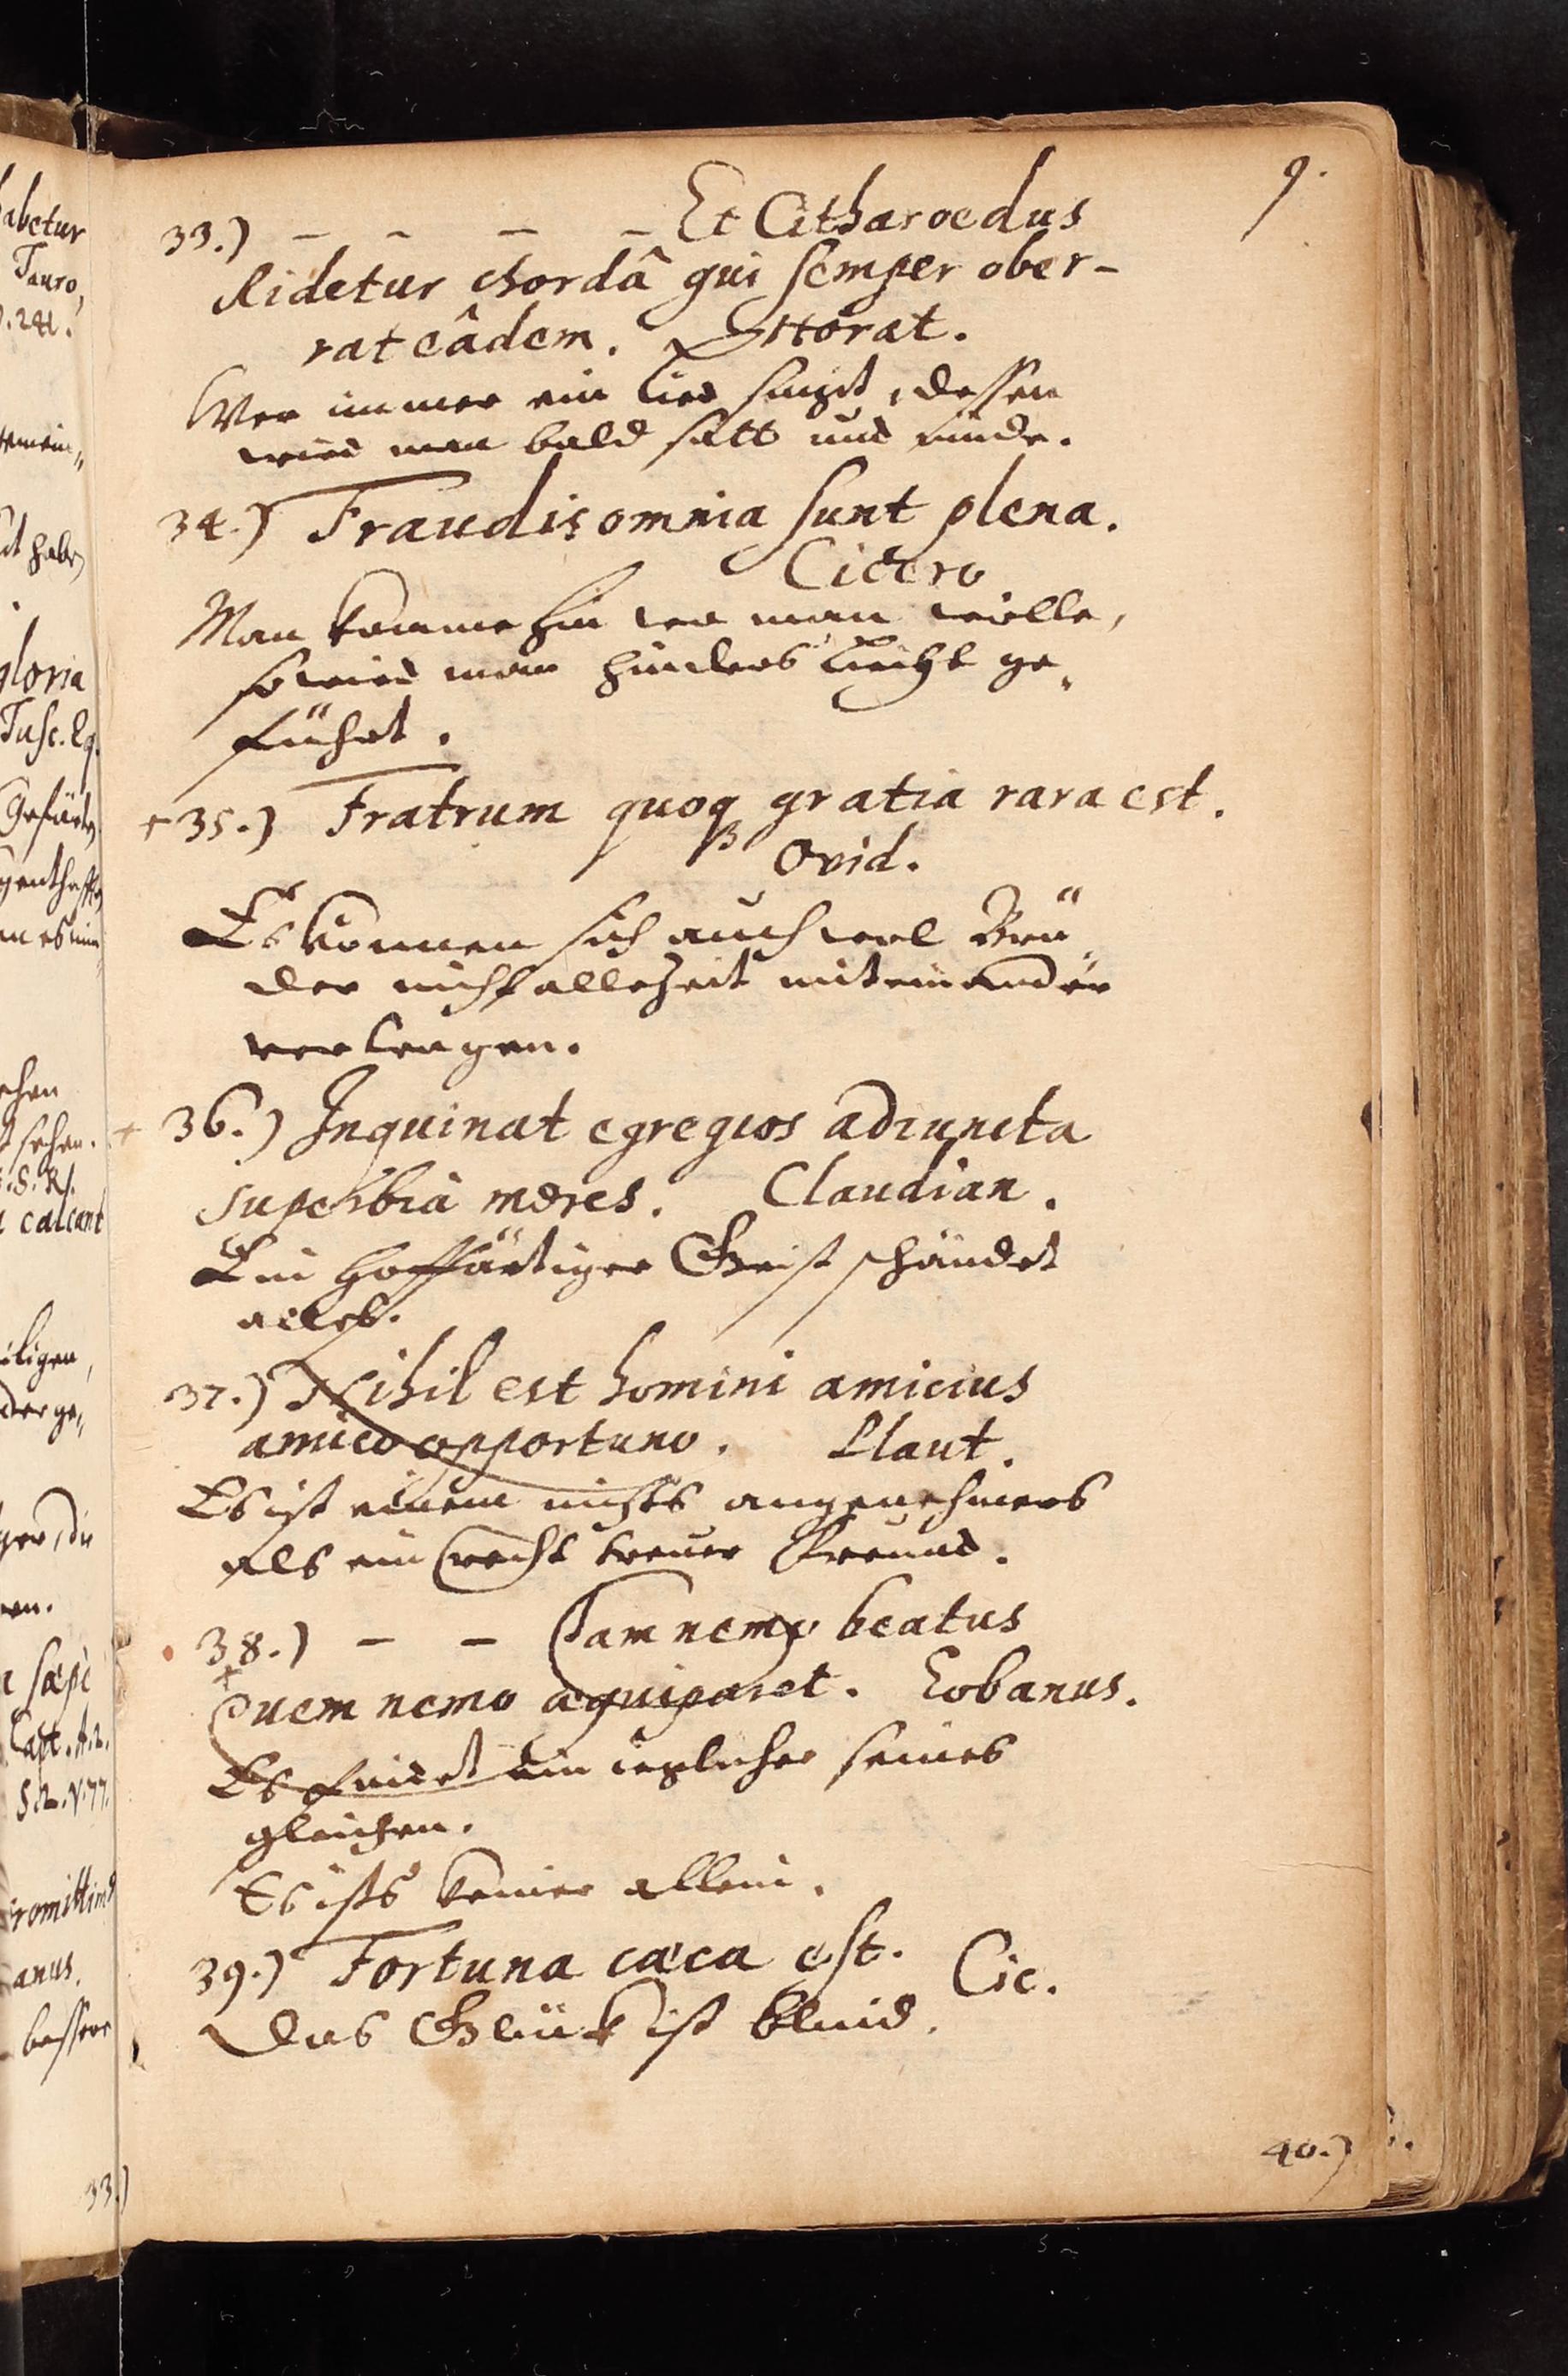 9.
33.) – – – – Et Citharoedus
Ridetur chordâ qui semper ober-
rat eâdem. Horat.
Wer immer ein Lied singt, dessen
wird man bald satt und müde.
34.) Fraudis omnia sunt plena.
Cicero
Man komme hin wo man wolle,
so wird man hinders Liecht ge„
führt.
+ 35.) Fratrum quoqꝫ gratia rara est.
Ovid.
Es können sich auch wol Brü„
der nicht allezeit miteinander
vertragen.
+ 36.) Inquinat egregios adiuncta
superbia mores. Claudian.
Ein hoffärtiger Geist schändet
alles.
37.) Nihil est homini amicius
amico opportuno. Plaut.
Es ist einem nichts angenehmers
als ein recht treuer Freund.
38.) – – Tam nemo beatus
+
Quem nemo æquiparet. Eobanus.
Es findet ein ieglicher seines
gleichen.
Es ists keiner allein.
39.) Fortuna cæca est. Cic.
Das Glück ist blind.
40.)
abetur
Tauro,
gloria
Tusc. Eq.
sehen.
calcant
sæpe
Capt. A.2.
S.2. V.77.
anus.
bessere
33.)